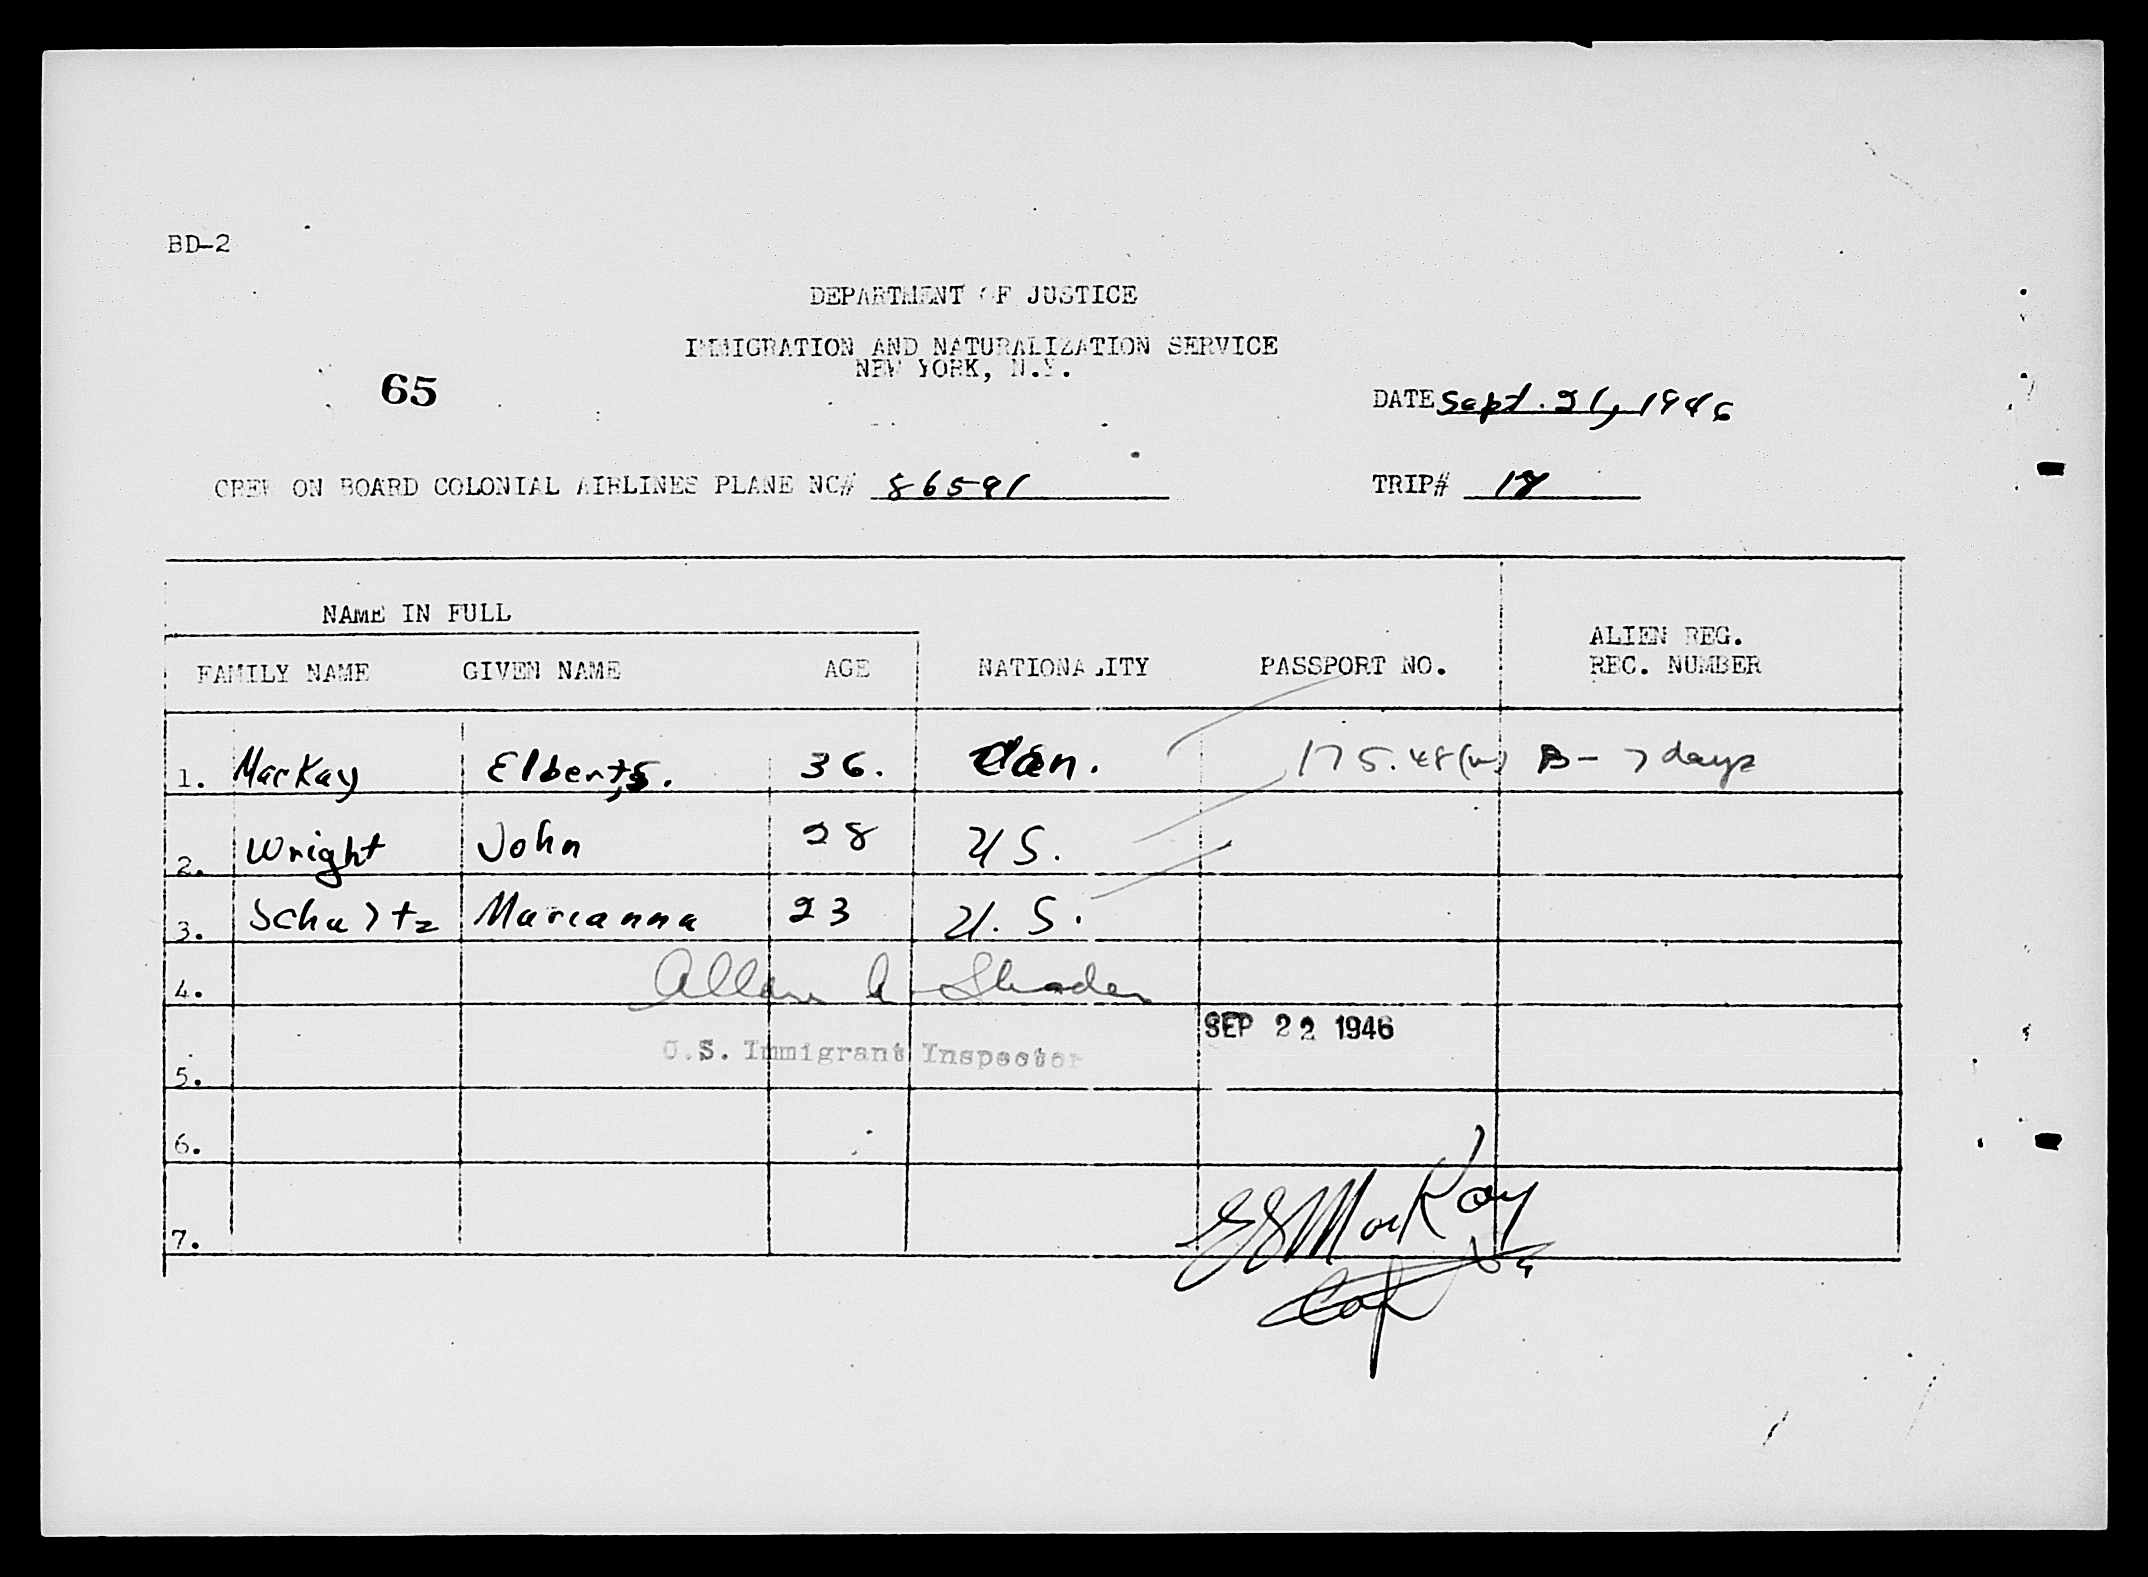 BD-2
DEPARTMENT OF JUSTICE
IMMIGRATION AND NATURALIZATION SERVICE
NEW YORK, N.Y.
65
DATE Sept. 21, 1946
CREW ON BOARD COLONIAL AIRLINES PLANE NC# 86591
TRIP# 18
NAME IN FULL
FAMILY NAME GIVEN NAME AGE NATIONALITY PASSPORT NO. ALIEN REG. REC. NUMBER
1. MacKay Elbert, S. 36. Can. 175.48(w) B- 7 days
2. Wright John 28 US.
3. Schultz Marianna 23 U. S.
4. Allan A
5. U.S. Immigrant Inspector SEP 22 1946
6.
7.
ES MacKay
Capt